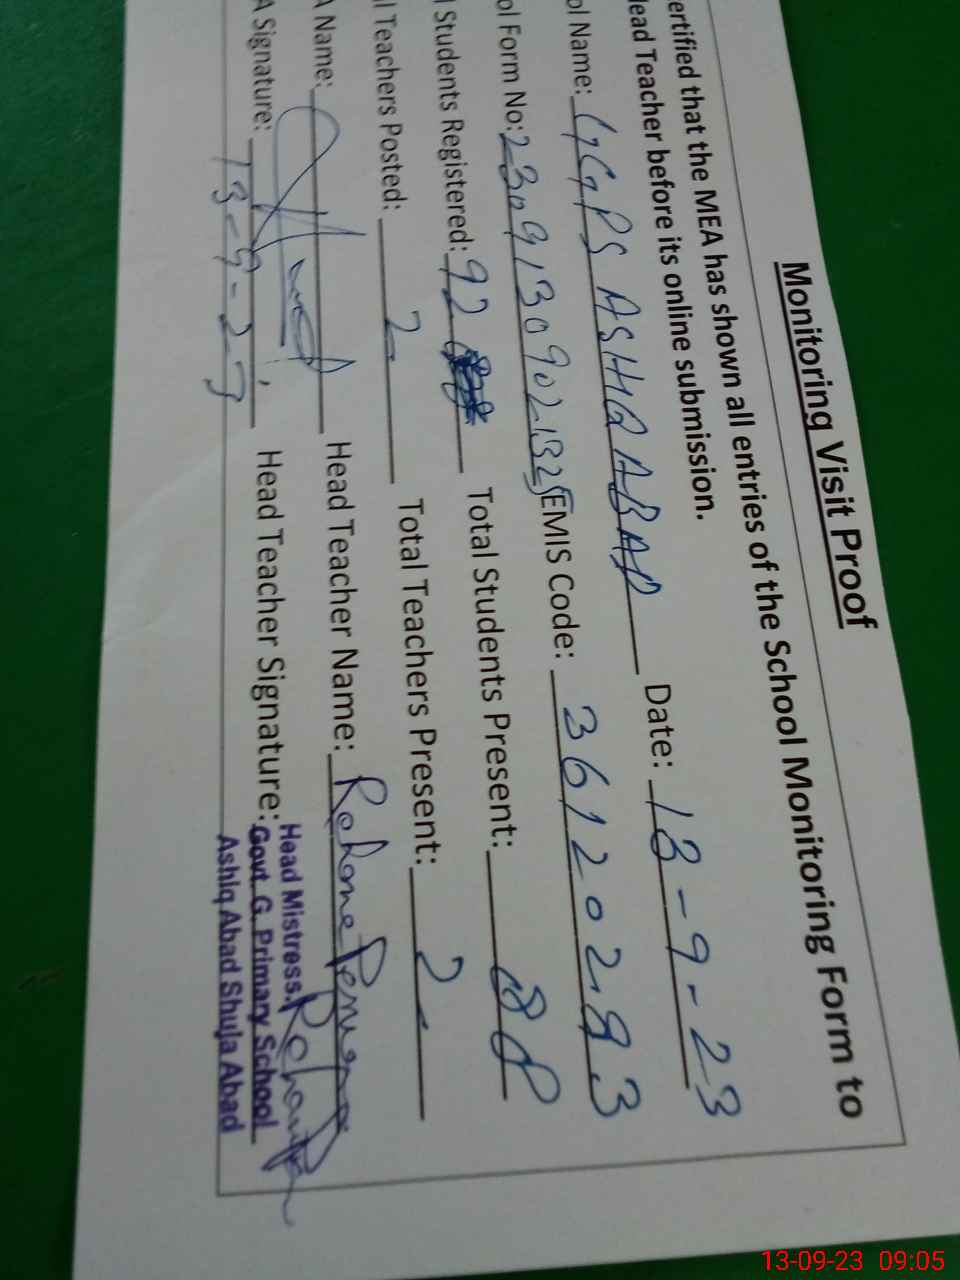 Monitoring Visit Proof
ertified that the MEA has shown all entries of the School Monitoring Form to
lead Teacher before its online submission.
ol Name: GGPS ASHQ ABAD Date: 13-9-23
ol Form No: 23091309021325 EMIS Code: 36120293
l Students Registered: 92 Total Students Present: 88
l Teachers Posted: 2 Total Teachers Present: 2
A Name: Head Teacher Name: Rehana
A Signature: Head Teacher Signature:
13-9-23
Head Mistress.
Govt. G. Primary School
Ashiq Abad Shuja Abad
13-09-23 09:05